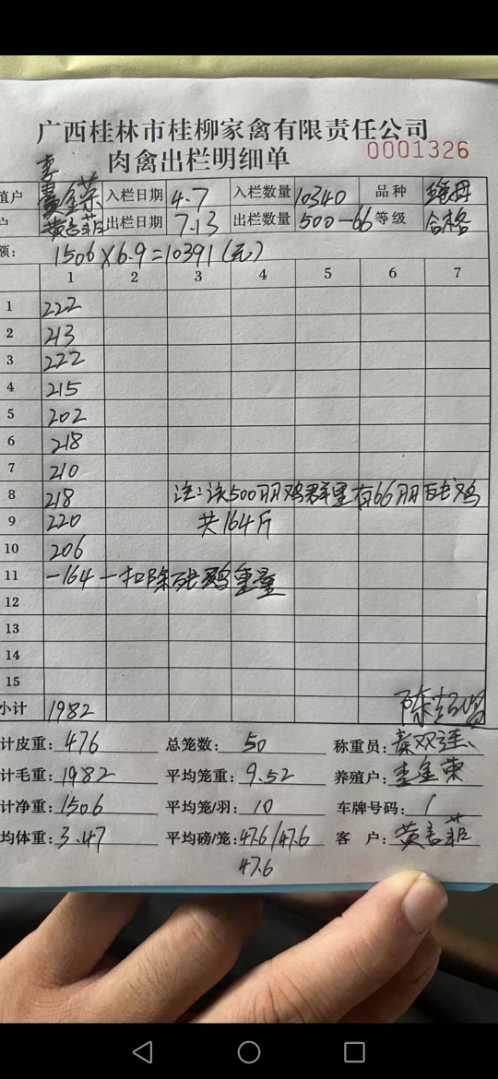 广西桂林市桂柳家禽有限责任公司
肉禽出栏明细单 0001326
李
植户 金荣 入栏日期 4.7 入栏数量 10340 品种
户 黄言菲 出栏日期 7.13 出栏数量 500-66 等级 合格
额: 1506×6.9=10391(元)
1 2 3 4 5 6 7
1 222
2 213
3 222
4 215
5 202
6 218
7 210
8 218 注:该500羽鸡群里有66羽残鸡
9 220 共164斤
10 206
11 -164-扣除残鸡重量
12
13
14
15
小计 1982
计皮重: 476 总笼数: 50 称重员: 秦双
计毛重: 1982 平均笼重: 9.52 养殖户: 李金荣
计净重: 1506 平均笼/羽: 10 车牌号码: /
均体重: 3.47 平均磅/笼: 47.6/47.6 客 户: 黄言菲
47.6